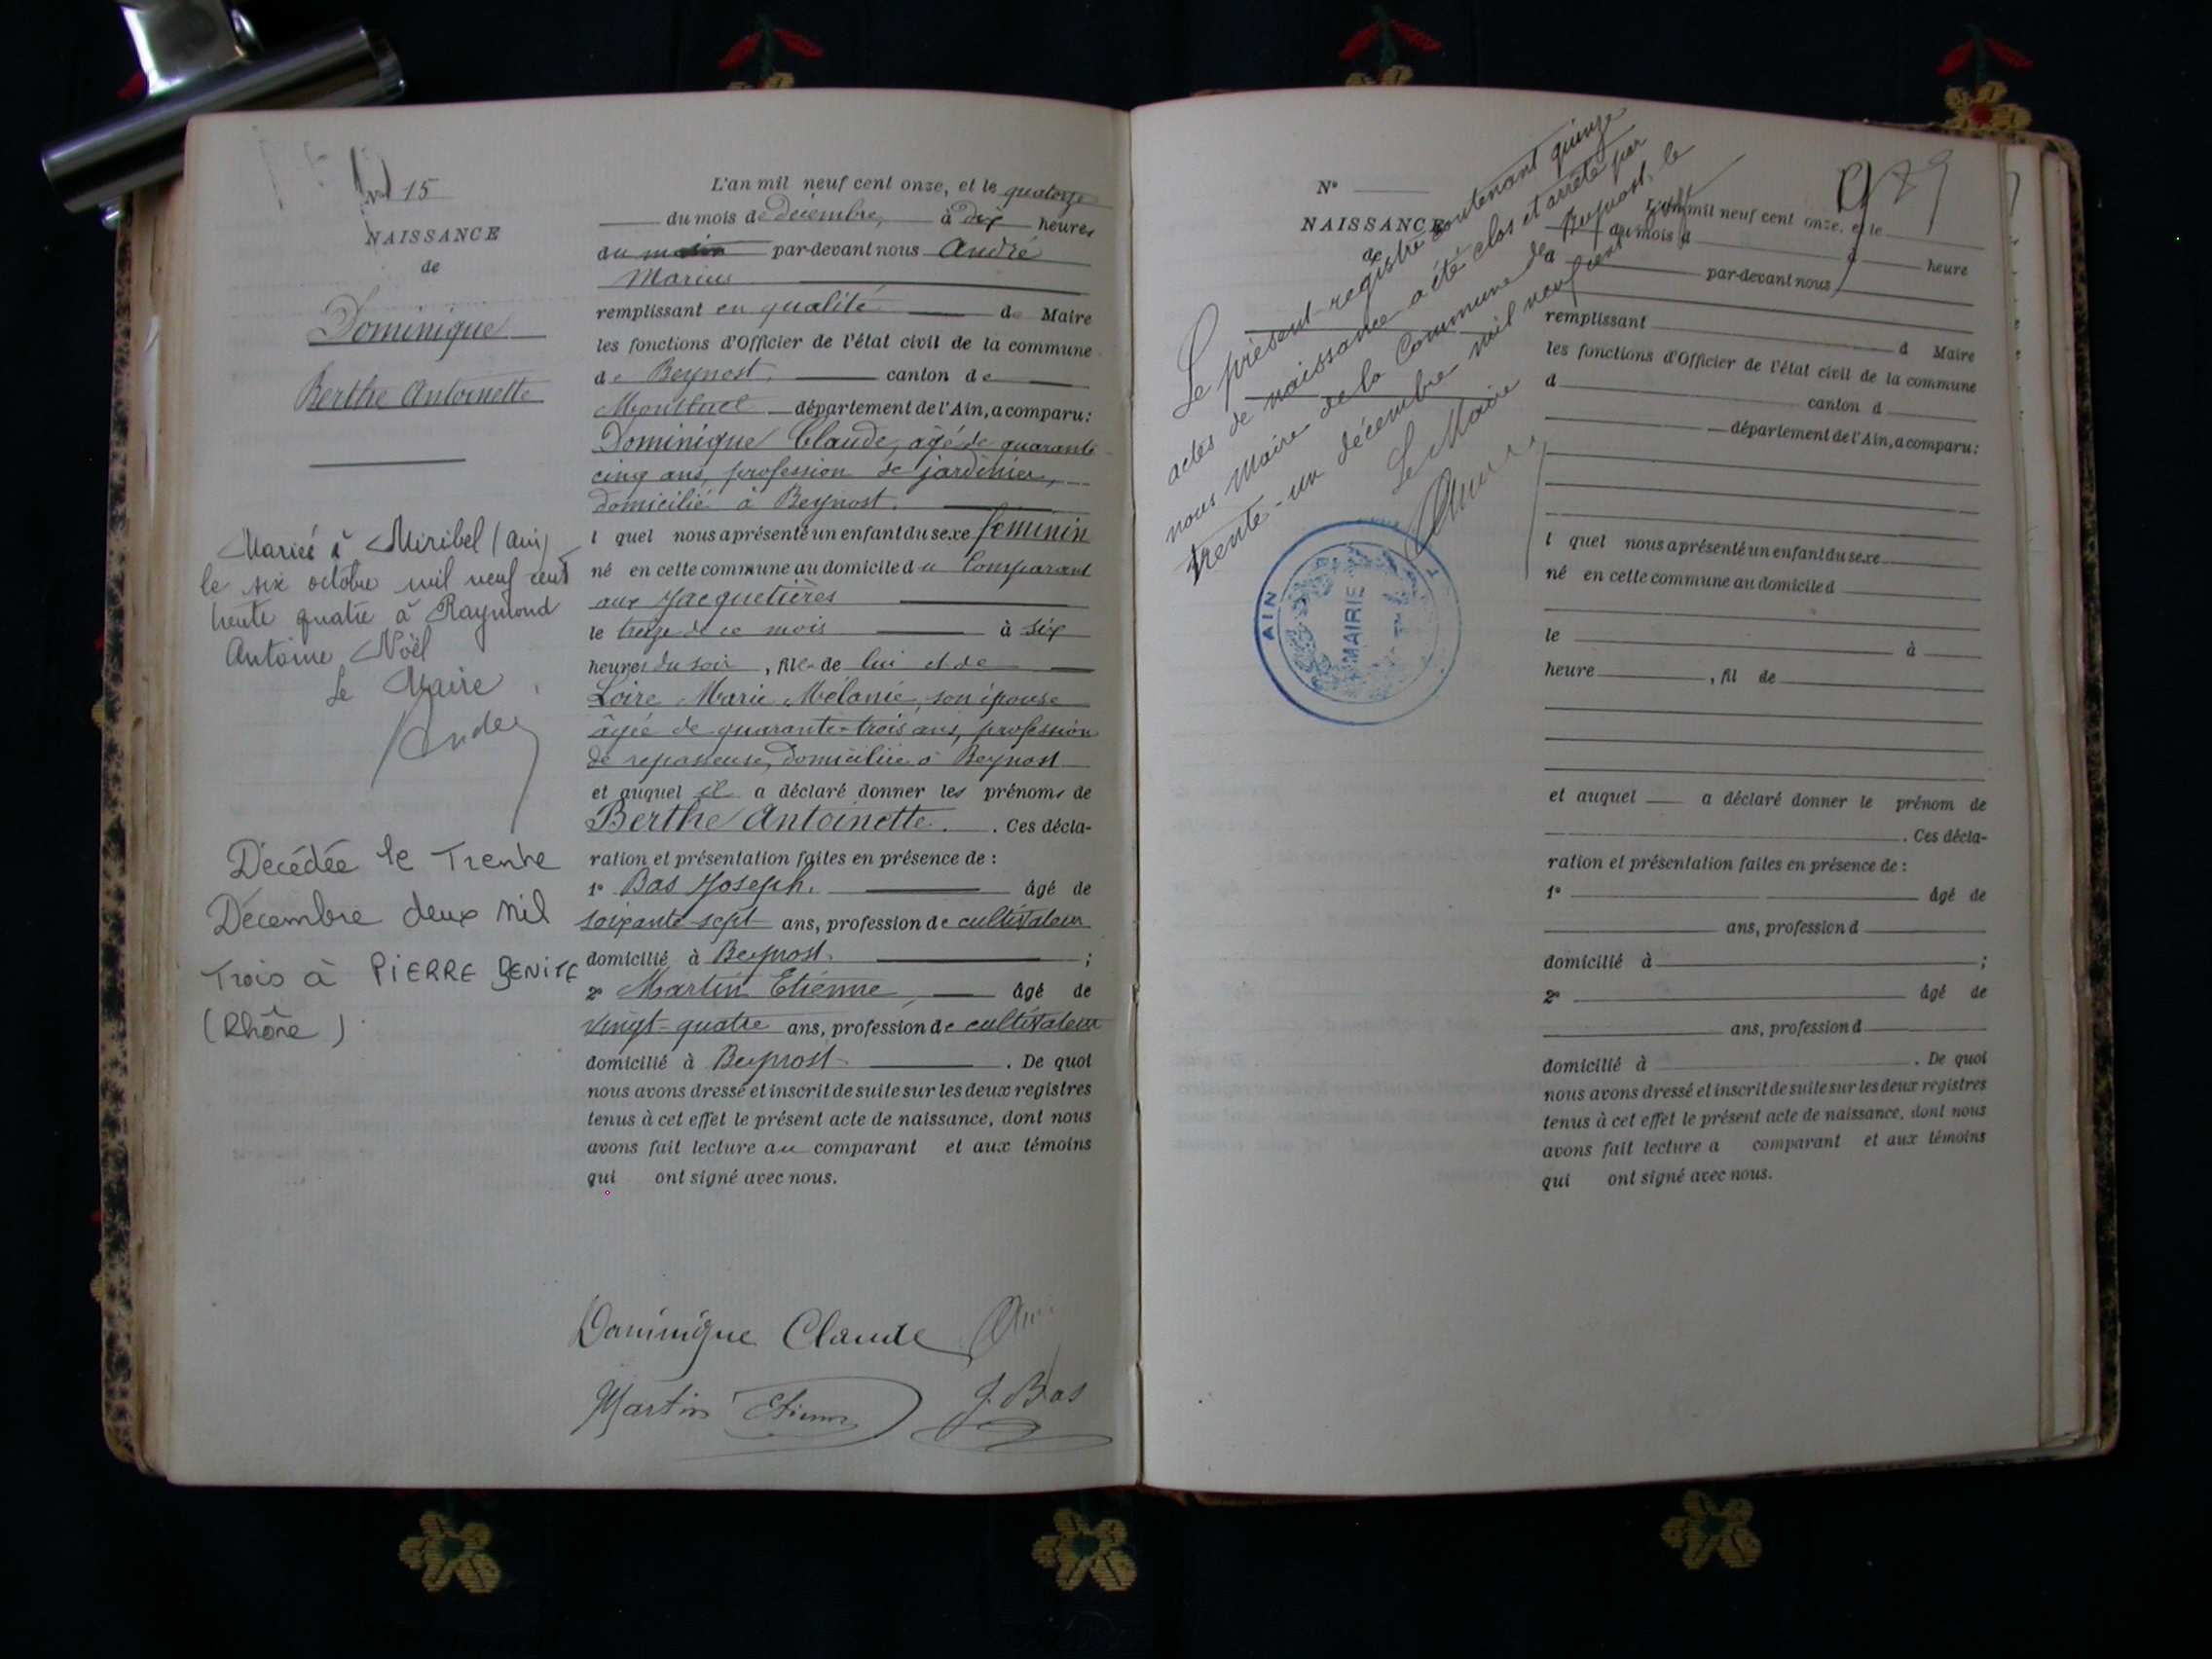 15
NAISSANCE
de
Dominique
Berthe Antoinette
Mariée à Miribel (Ain)
le six octobre mil neuf cent
trente quatre à Raymond
Antoine Noël
Le Maire
Décédée le Trente
Décembre deux mil
Trois à PIERRE BENITE
(Rhône)
L'an mil neuf cent onze, et le quatorze
du mois de décembre, à dix heures
du matin par-devant nous André
Marius
remplissant en qualité de Maire
les fonctions d'Officier de l'état civil de la commune
de Beynost, canton de
Montluel département de l'Ain, a comparu:
Dominique Claude, âgé de quarante
cinq ans, profession de jardinier,
domicilié à Beynost.
l quel nous a présenté un enfant du sexe féminin
né en cette commune au domicile du Comparant
aux Jacquetières
le treize de ce mois à six
heures du soir, fille de lui et de
Loire Marie Mélanie, son épouse
âgée de quarante-trois ans, profession
de repasseuse, domiciliée à Beynost
et auquel il a déclaré donner les prénoms de
Berthe Antoinette. Ces décla-
ration et présentation faites en présence de :
1° Bas Joseph, âgé de
soixante-sept ans, profession de cultivateur
domicilié à Beynost. ;
2° Martin Etienne, âgé de
vingt-quatre ans, profession de cultivateur
domicilié à Beynost. De quoi
nous avons dressé et inscrit de suite sur les deux registres
tenus à cet effet le présent acte de naissance, dont nous
avons fait lecture au comparant et aux témoins
qui ont signé avec nous.
Dominique Claude
Martin Etienne J. Bas
N°
NAISSANCE
de
Le présent registre contenant quinze
actes de naissance a été clos et arrêté par
nous Maire de la Commune de Beynost, le
trente-un décembre mil neuf cent onze
Le Maire
AIN
MAIRIE
L'an mil neuf cent onze, et le
du mois d à heure
par-devant nous
remplissant d Maire
les fonctions d'Officier de l'état civil de la commune
d canton d
département de l'Ain, a comparu:
l quel nous a présenté un enfant du sexe
né en cette commune au domicile d
le à
heure , fil de
et auquel a déclaré donner le prénom de
. Ces décla-
ration et présentation faites en présence de :
1° âgé de
ans, profession d
domicilié à ;
2° âgé de
ans, profession d
domicilié à . De quoi
nous avons dressé et inscrit de suite sur les deux registres
tenus à cet effet le présent acte de naissance, dont nous
avons fait lecture a comparant et aux témoins
qui ont signé avec nous.